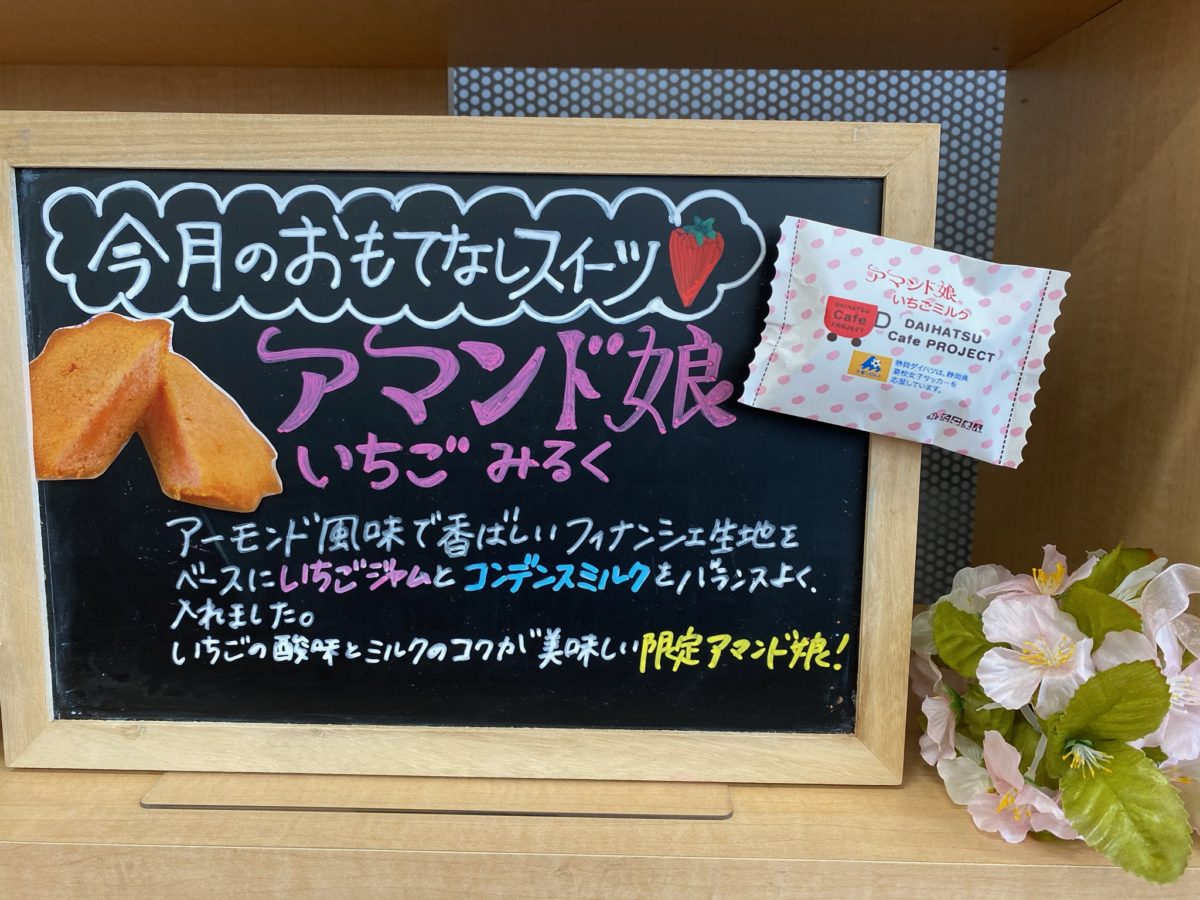 今月のおもてなしスイーツ
アマンド娘
いちごみるく
アーモンド風味で香ばしいフィナンシェ生地を
ベースにいちごジャムとコンデンスミルクをバランスよく
入れました。
いちごの酸味とミルクのコクが美味しい限定アマンド娘!
アマンド娘
いちごミルク
DAIHATSU
Cafe
PROJECT
DAIHATSU
Cafe PROJECT
静岡ダイハツは、静岡県
高校女子サッカーを
応援しています。
たこまん